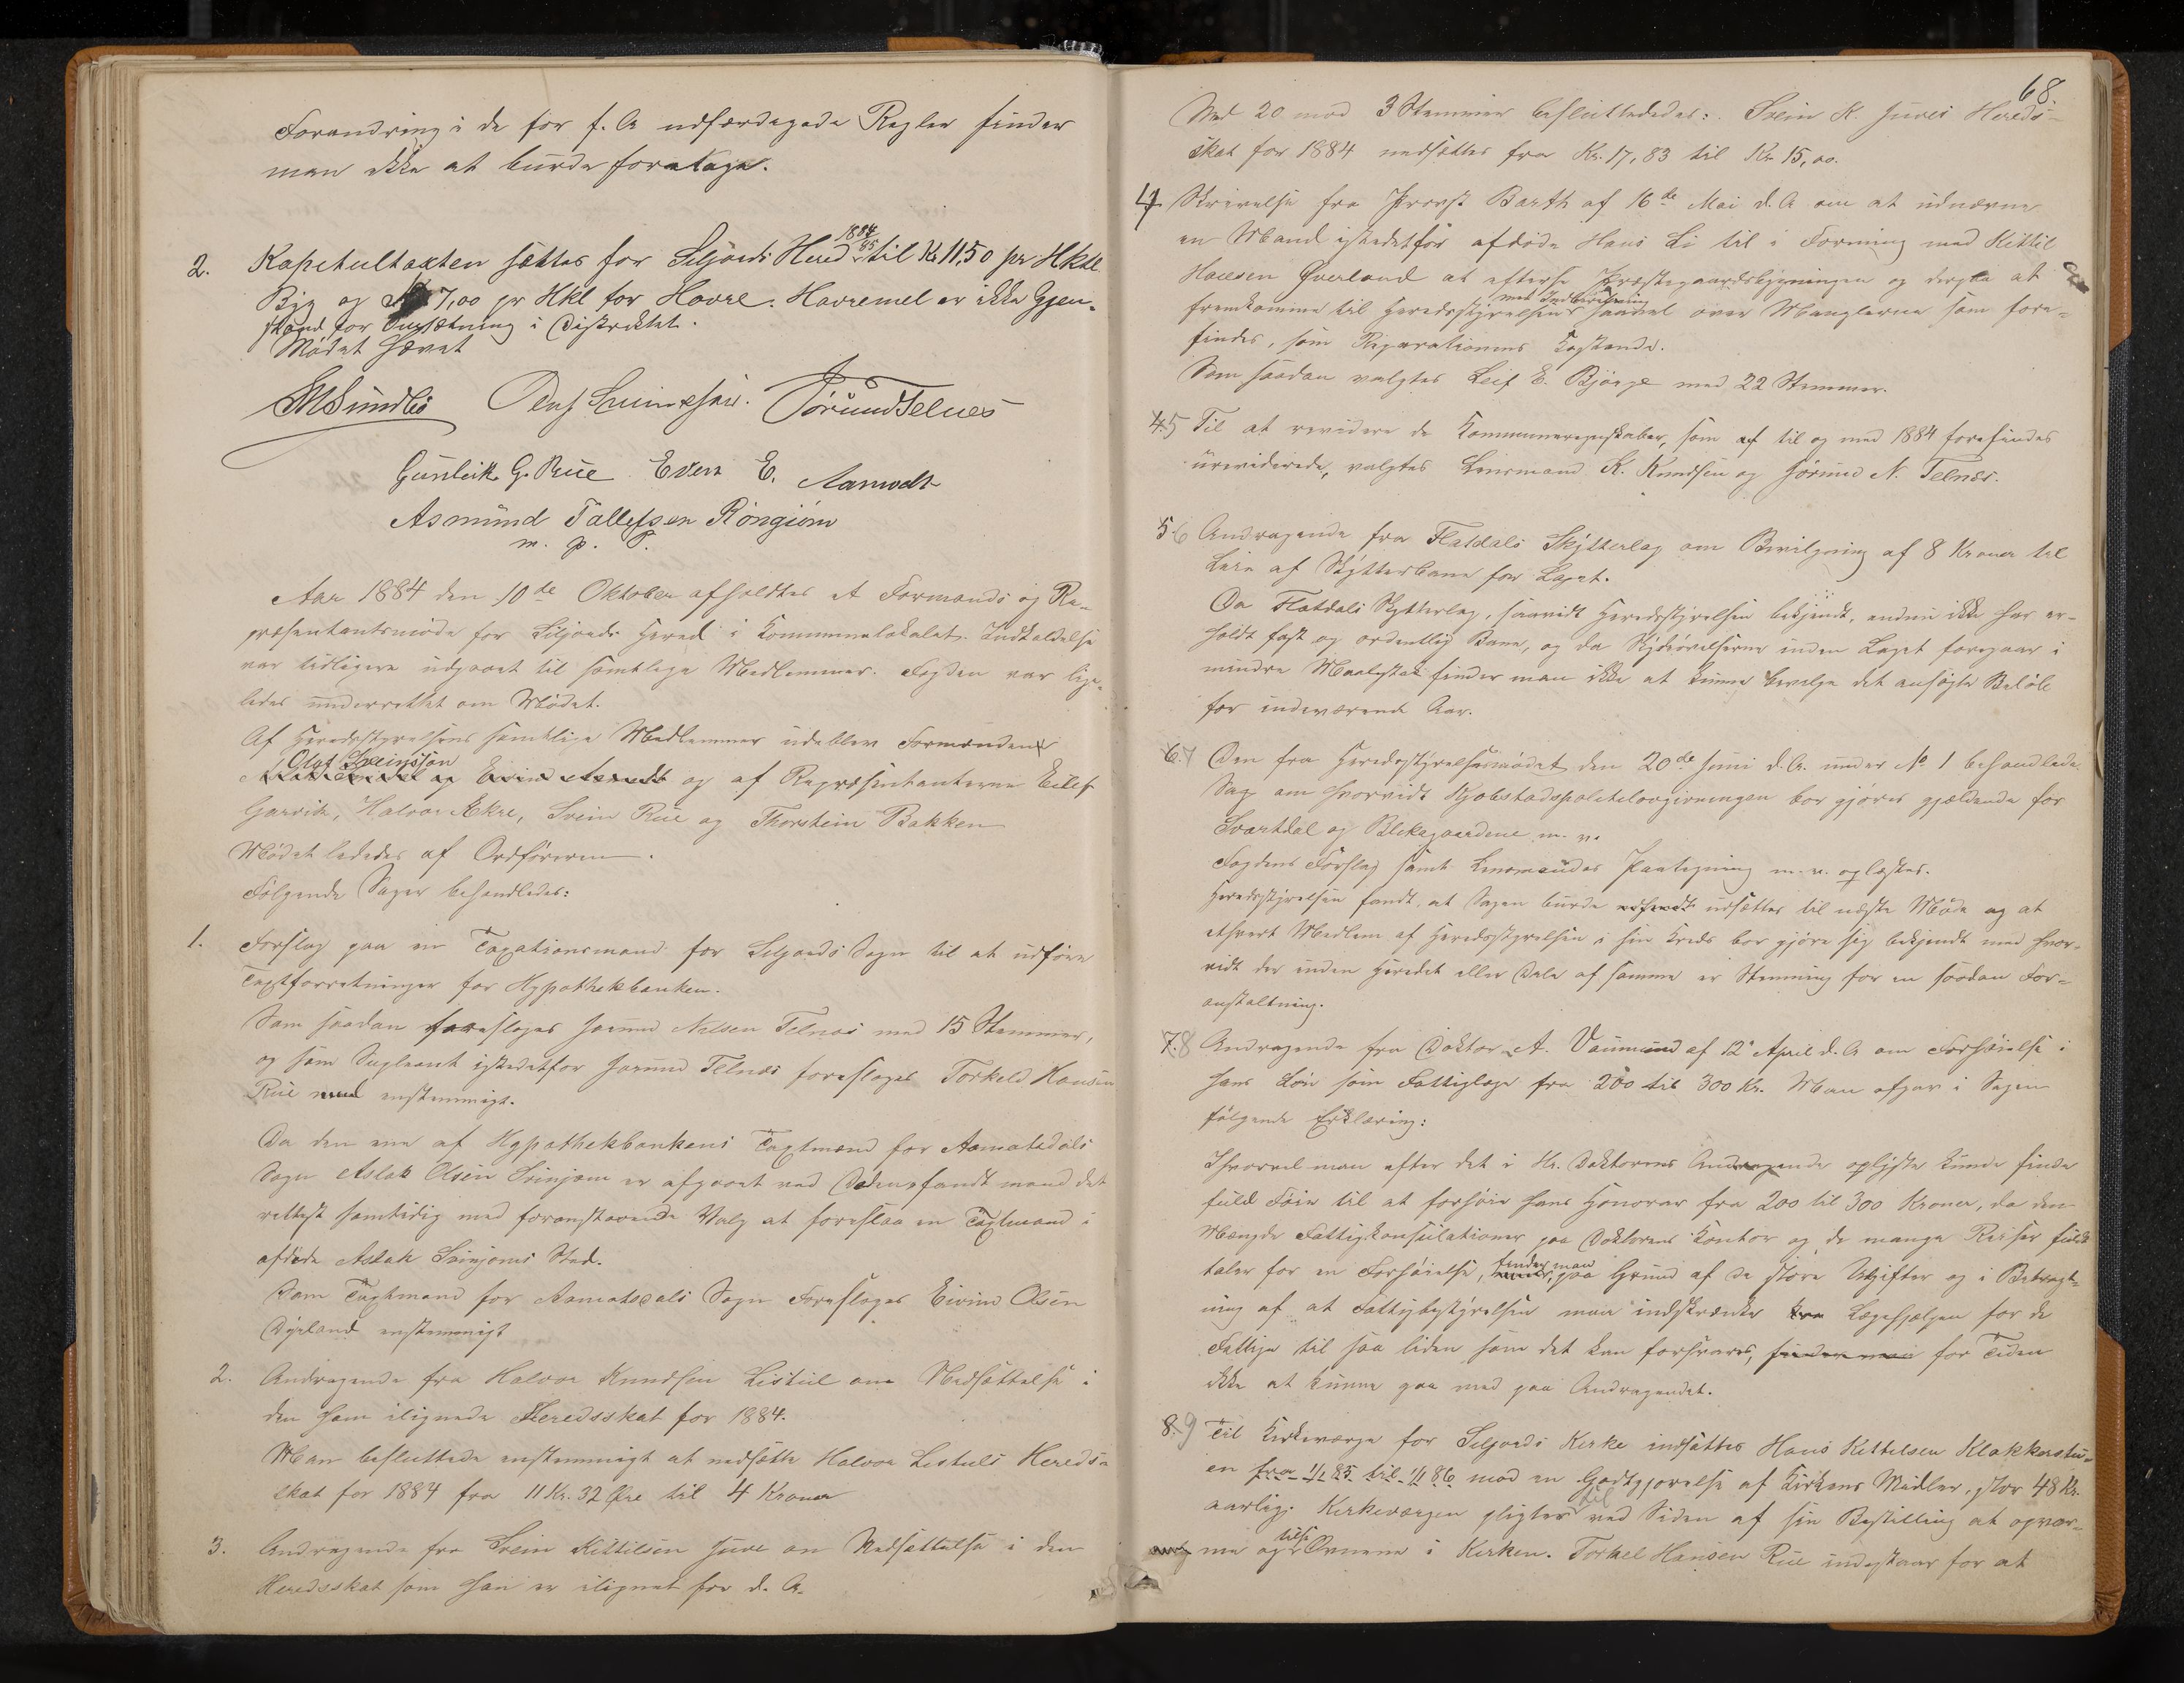 Forandring i de for f. A udfærdigede Regler finder
man ikke at burde foretage.
2. Kapiteltaxten sættes for Seljords Hered 1884/85 til Kr 11,50 pr Hktl
Byg og Kr 7,00 pr Hkl for Havre. Havremel er ikke Gjen-
stand for Omsætning i Distriktet.
Mødet hævet
Olaf Sveinsson. Jørund Telnes
Gunleik G. Rue Even E. Aamodt
Asmund Tallefsen
m. p. P.
Aar 1884 den 10de Oktober afholdtes et Formands og Re-
præsentantsmøde for Siljords Hered i Kommunelokalet. Indkaldelse
var tidligere udgaaet til samtlige Medlemmer. Fogden var lige-
ledes underrettet om Mødet.
Af Heredsstyrelsens samtlige Medlemmer udeblev Formanden
Olaf Sveinsson
og af Repræsentanterne Eilef
Garvik, Halvor Aakre, Svein Rue og Thorstein Bakken
Mødet lededes af Ordføreren.
Følgende Sager behandledes:
1. Forslag paa en Taxationsmand for Seljords Sogn til at udføre
Taxtforretninger for Hypothekbanken.
Som saadan foresloges Jørund Nilsen Telnes med 15 Stemmer,
og som Supleant istedetfor Jørund Telnes foresloges Torkeld Hansen
Rue med enstemmigt.
Da den ene af Hypothekbankens Taxtmænd for Aamotsdals
Sogn Aslak Olsen Svinjom er afgaaet ved Døden, fandt mand det
rettest samtidig med foranstaaende Valg at foreslaa en Taxtmand i
afdøde Aslak Svinjoms Sted.
Som Taxtmand for Aamotsdals Sogn Foresloges Eivind Olsen
Dyrland enstemmigt
2. Andragende fra Halvor Knudsen Listul om Nedsættelse i
den ham ilignede Heredsskat for 1884.
Man besluttede enstemmigt at nedsætte Halvor Listuls Hereds-
skat for 1884 fra 11 Kr. 32 Øre til 4 Kroner
3. Andragende fra Svein Kittilsen Juve om Nedsættelse i den
Heredsskat som han er ilignet for d. A.
68
Med 20 mod 3 Stemmer besluttededes: Svein K. Juves Hereds-
skat for 1884 nedsættes fra Kr. 17,83 til Kr 15,00.
4 Skrivelse fra Provst Barth af 16de Mai d. A om at udnævne
en Mand istedetfor afdøde Hans Li til i Forening med Kittil
Halvsen Øverland at efterse Præstegaardsbygningen og derpaa at
fremkomme til Heredsstyrelsen med Indberetning saavel over Manglerne som fore-
findes, som Reparationens Kostende.
Som saadan valgtes Leif E. Bjørge med 22 Stemmer.
4.5 Til at revidere de Kommuneregnskaber, som af til og med 1884 forefindes
urevidirede, valgtes Lensmand K. Knudsen og Jørund N. Telnes.
5.6 Andragende fra Flatdals Skytterlag om Bevilgning af 8 Kroner til
Leie af Skytterbane for Laget.
Da Flatdals Skytterlag, saavidt Heredsstyrelsen bekjendt, endnu ikke har er-
holdt fast og ordentlig Bane, og da Skydeøvelserne inden Laget foregaar i
mindre Maalestok finder man ikke at kunne bevilge det ansøgte Beløb
for indeværende Aar.
6.7 Den fra Heredsstyrelsesmødet den 20de Juni d. A. under No 1 behandlede
Sag om hvorvidt Kjøbstadspolitilovgivningen bør gjøres gjældende for
Svartdal og Blekagaardene m. v.
Fogdens Forslag samt Lensmandes Paategning m. v. oplæstes.
Heredsstyrelsen fandt, at Sagen burde udsættes til næste Møde og at
ethvert Medlem af Heredsstyrelsen i sin Kreds bør gjøre sig bekjendt med hvor-
vidt der inden Heredet eller Dele af samme er Stemning for en saadan For-
anstaltning.
7.8 Andragende fra Doktor A. Vaumund af 12te April d. A om Forhøielse i
hans Løn som Fattiglæge fra 200 til 300 Kr. Man afgav i Sagen
følgende Erklæring:
Ihvorvel man efter det i Hr. Doktorens Andragende oplyste kunde finde
fuld Føie til at forhøie hans Honorar fra 200 til 300 Kroner, da den
Mængde Fattigkonsulationer paa Doktorens Kontor og de mange Reiser fuldt
taler for en Forhøielse, finder man paa Grund af de store Udgifter og i Betragt-
ning af at Fattigbestyrelsen maa indskrænke Lægehjælpen for de
Fattige til saa liden som det kan forsvares, finder man for Tiden
ikke at kunne gaa med paa Andragendet.
8.9 Til Kirkeværge for Seljords Kirke indsættes Hans Kittilsen Klokkerstu-
en fra 1/1 85 til 1/1 86 mod en Godtgjørelse af Kirkens Midler, stor 48 Kr.
aarlig. Kirkeværgen pligter til ved Siden af sin Bestilling at opvar-
me og tilse Ovnene i Kirken. Torkel Hansen Rue indestaar for at